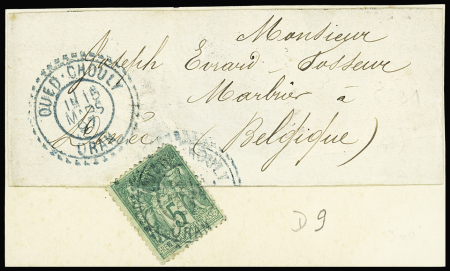 Monsieur
Joseph Evrard Posseur
Marbrier à
(Belgique)
OUED-CHOULY
18
MARS
ORAN
5
ORAN
D 9